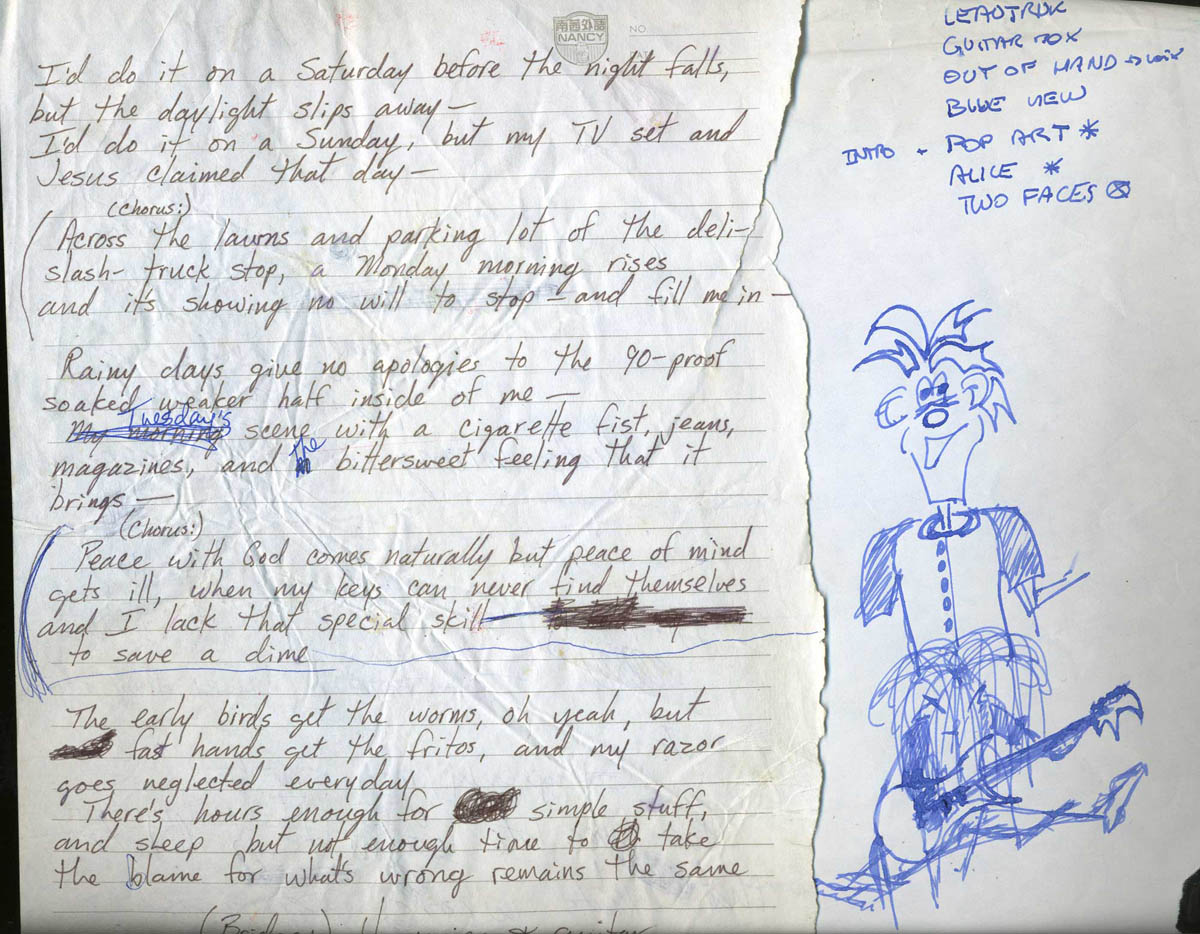 南茜外語
NANCY
NO.
I'd do it on a Saturday before the night falls,
but the daylight slips away—
I'd do it on a Sunday, but my TV set and
Jesus claimed that day—
(Chorus:)
Across the lawns and parking lot of the deli-
slash- truck stop, a Monday morning rises
and it's showing no will to stop — and fill me in —
Rainy days give no apologies to the 90-proof
soaked weaker half inside of me —
Tuesday's
My morning scene with a cigarette fist, jeans,
magazines, and the bittersweet feeling that it
brings —
(Chorus:)
Peace with God comes naturally but peace of mind
gets ill, when my keys can never find themselves
and I lack that special skill
to save a dime
The early birds get the worms, oh yeah, but
fast hands get the fritos, and my razor
goes neglected everyday
There's hours enough for simple stuff,
and sleep but not enough time to take
the blame for what's wrong remains the same
(Bridge:) guitar
GUITAR
OUT OF HAND →
BLUE VIEW
INTRO - POP ART *
ALICE *
TWO FACES